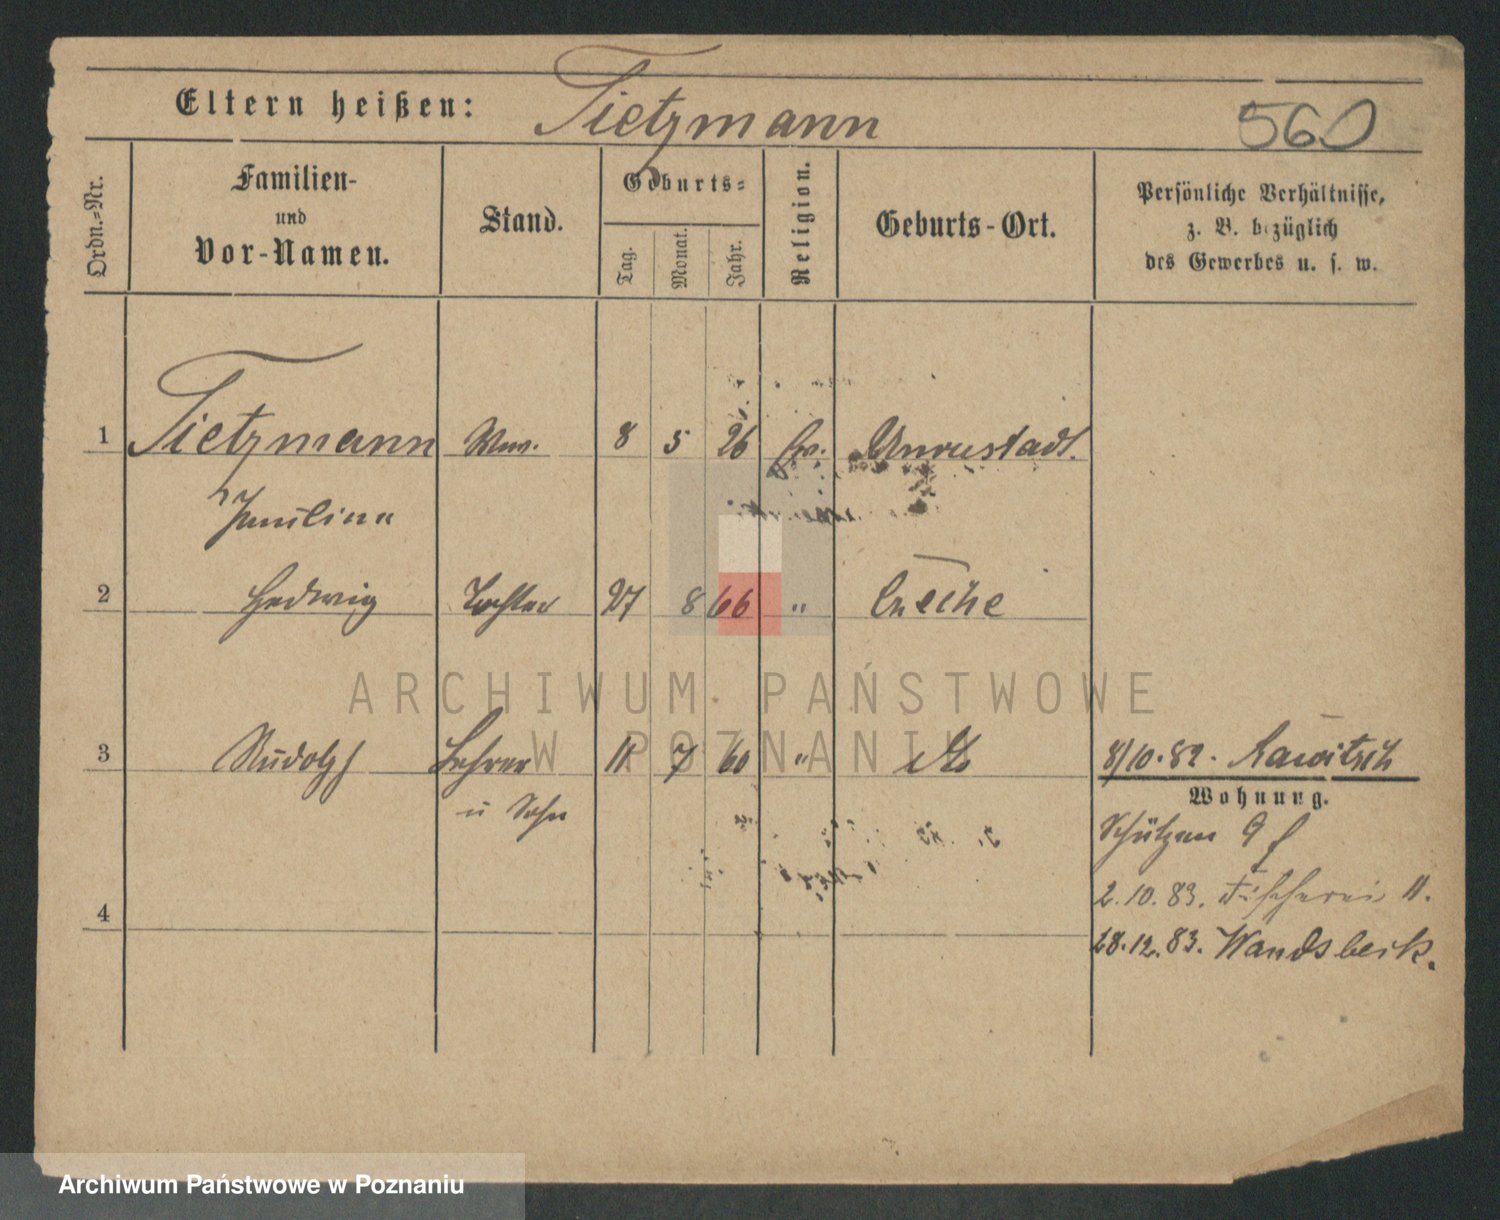 Eltern heißen: Tietzmann 560
Ordn.=Nr.
Familien-
und
Vor-Namen.
Stand.
Geburts=
Tag.
Monat.
Jahr.
Religion.
Geburts-Ort.
Persönliche Verhältnisse,
z. B. bezüglich
des Gewerbes u. s. w.
1 Tietzmann Wwe. 8 5 26 ev. Unruhstadt.
Pauline
2 Hedwig Tochter 27 8 66 "
ARCHIWUM PAŃSTWOWE
W POZNANIU
3 Rudolph Lehrer 7 60 " 8/10.82. Rawitsch
u Sohn
Wohnung.
Schützen 9 f
2.10.83. Fischerei 11.
28.12.83. Wandsbeck.
4
Archiwum Państwowe w Poznaniu